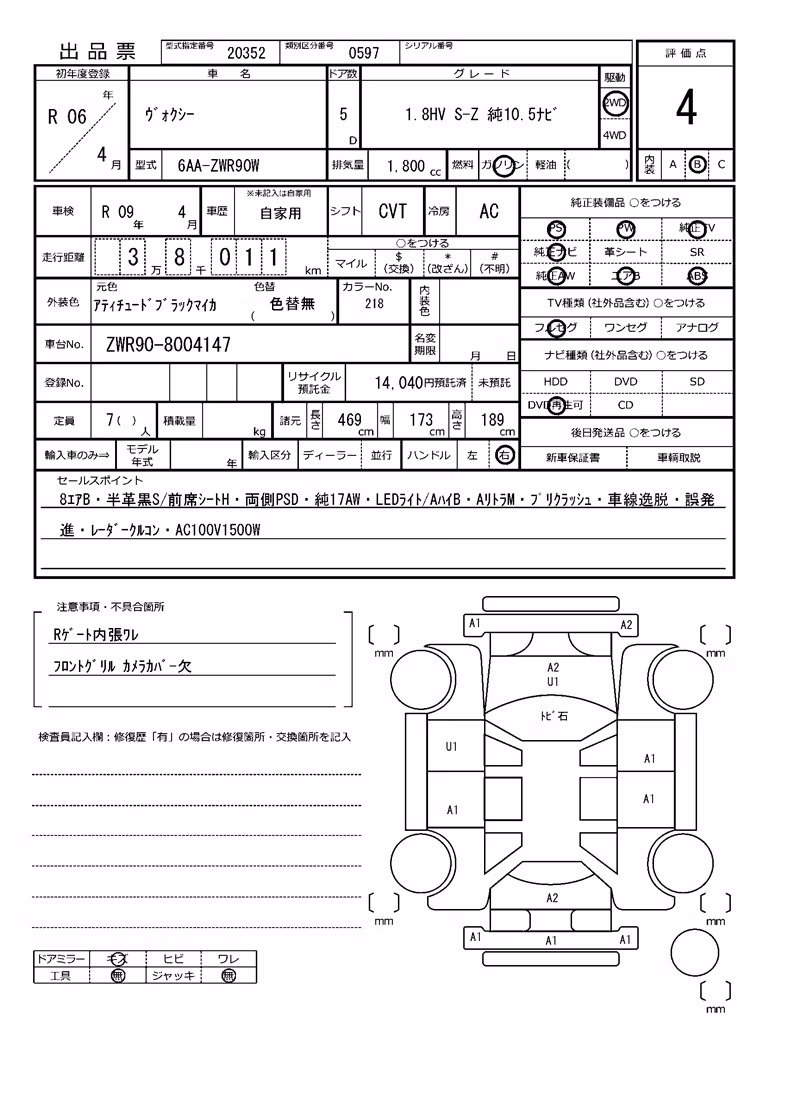 出品票
型式指定番号 20352 類別区分番号 0597 シリアル番号
評価点
初年度登録 車名 ドア数 グレード 駆動
R 06 年 4 月
ヴォクシー
5 D
1.8HV S-Z 純10.5ナビ
2WD
4WD
4
型式 6AA-ZWR90W 排気量 1,800 cc 燃料 ガソリン 軽油 ( )
内装 A B C
車検 R 09 年 4 月 車歴 ※未記入は自家用 自家用 シフト CVT 冷房 AC
走行距離 3 万 8 千 0 1 1 km
○をつける
マイル $(交換) *(改ざん) #(不明)
外装色 元色 アティチュードブラックマイカ 色替 ( 色替無 ) カラーNo. 218 内装色
車台No. ZWR90-8004147 名変期限 月 日
登録No. リサイクル預託金 14,040円預託済 未預託
定員 7( ) 人 積載量 kg 諸元 長さ 469 cm 幅 173 cm 高さ 189 cm
輸入車のみ⇒ モデル年式 年 輸入区分 ディーラー 並行 ハンドル 左 右
純正装備品 ○をつける
PS PW 純正TV
純正ナビ 革シート SR
純正AW エアB ABS
TV種類(社外品含む)○をつける
フルセグ ワンセグ アナログ
ナビ種類(社外品含む)○をつける
HDD DVD SD
DVD再生可 CD
後日発送品 ○をつける
新車保証書 車輌取説
セールスポイント
8エアB・半革黒S/前席シートH・両側PSD・純17AW・LEDライト/AハイB・AリトラM・プリクラッシュ・車線逸脱・誤発
進・レーダークルコン・AC100V1500W
注意事項・不具合箇所
Rゲート内張ワレ
フロントグリル カメラカバー欠
検査員記入欄:修復歴「有」の場合は修復箇所・交換箇所を記入
ドアミラー キズ ヒビ ワレ
工具 無 ジャッキ 無
A1 A2
mm mm
A2
U1
トビ石
U1
A1
A1
A1
A2
mm mm
A1 A1 A1
mm